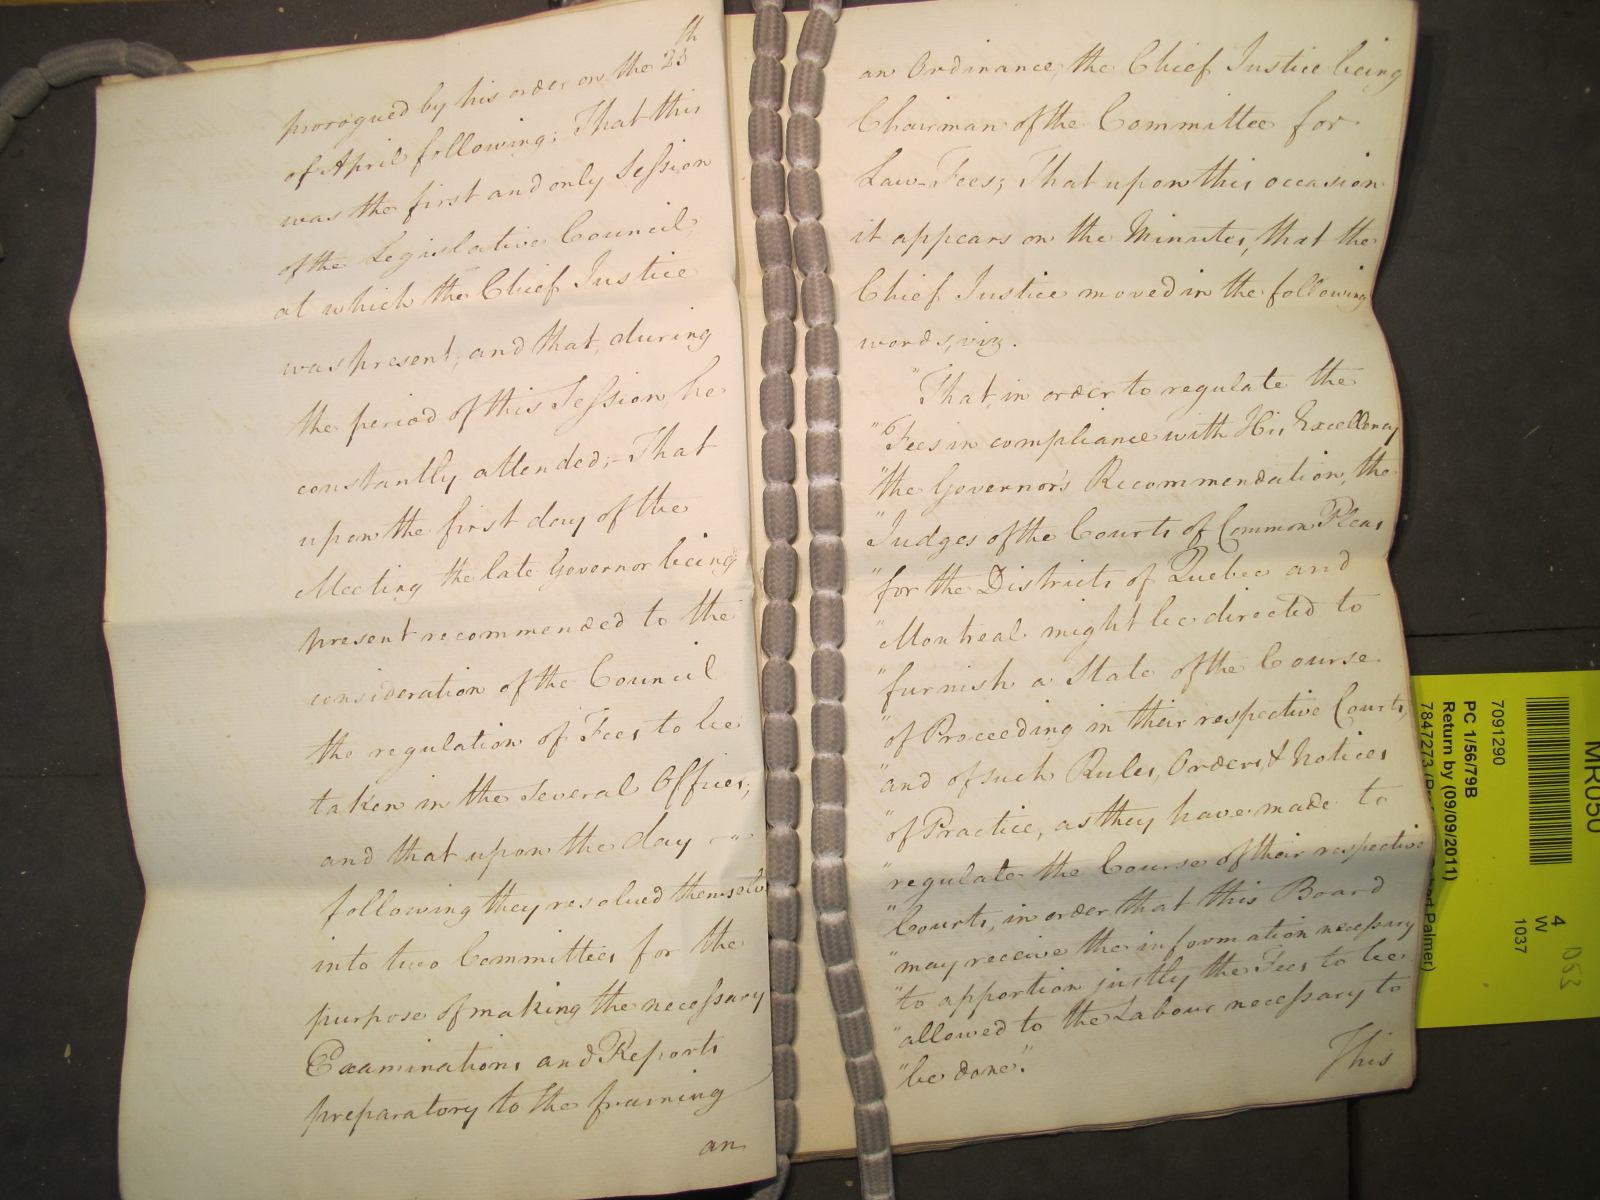 prorogued by his order on the 25th
of April following; That this
was the first and only Session
of the Legislative Council,
at which the Chief Justice
was present, and that, during
the period of this Session, he
constantly attended;- That
upon the first day of the
Meeting the late Governor being
present recommended to the
consideration of the Council
the regulation of Fees to be
taken in the several Offices;
and that upon the day
following they resolved themselves
into two Committees for the
purpose of making the necessary
Examinations and Reports
preparatory to the framing
an
an Ordinance, the Chief Justice being
Chairman of the Committee for
Law-Fees; That upon this occasion
it appears on the Minutes, that the
Chief Justice moved in the following
words, viz.
"That, in order to regulate the
"Fees in compliance with His Excellency
"the Governor's Recommendation, the
"Judges of the Courts of Common Pleas
"for the Districts of Quebec and
"Montreal might be directed to
"furnish a State of the Course
"of Proceeding in their respective Courts,
"and of such Rules, Orders, & Notices
"of Practice, as they have made to
"regulate the Course of their respective
"Courts, in order that this Board
"may receive the information necessary
"to apportion justly the Fees to be
"allowed to the Labour necessary to
"be done."
This
7091290
PC 1/56/79B
Return by (09/09/2011)
7847273
Palmer)
MR050
4
W
1037